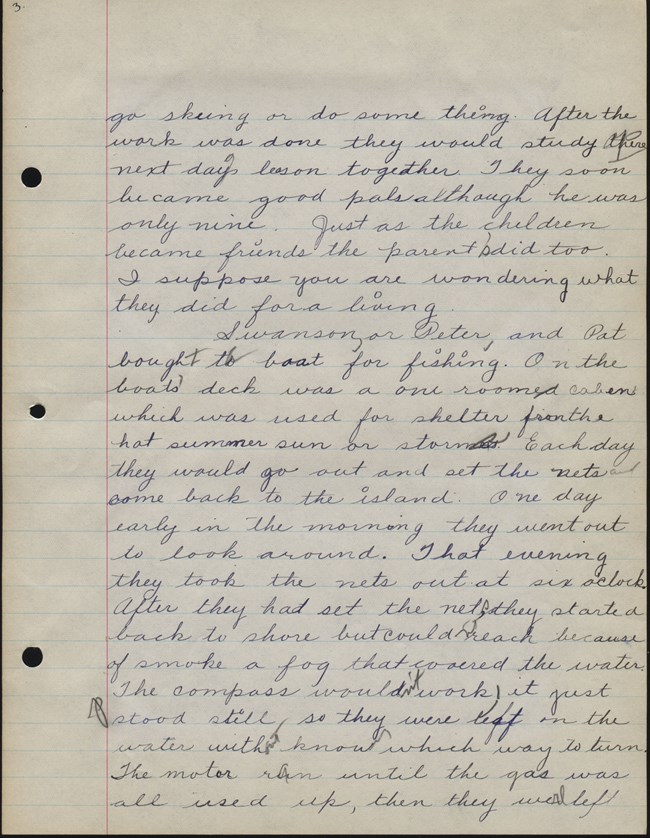 3.
go skeing or do some thing. After the
work was done they would study there
next days leson together. They soon
became good pals although he was
only nine. Just as the cheldren
became friends the parents did too.
I suppose you are wondering what
they did for a living.
Swanson, or Peter, and Pat
bought boat for fishing. On the
boats' deck was a one roomed caben
which was used for shelter from the
hot summer sun or storms. Each day
they would go out and set the nets and
come back to the island. One day
early in the morning they went out
to look around. That evening
they took the nets out at six oclock.
After they had set the nets, they started
back to shore but could reach because
of smoke a fog that covered the water.
The compass wouldn't work, it just
stood still, so they were left on the
water without know which way to turn.
The motor ran until the gas was
all used up, then they were left